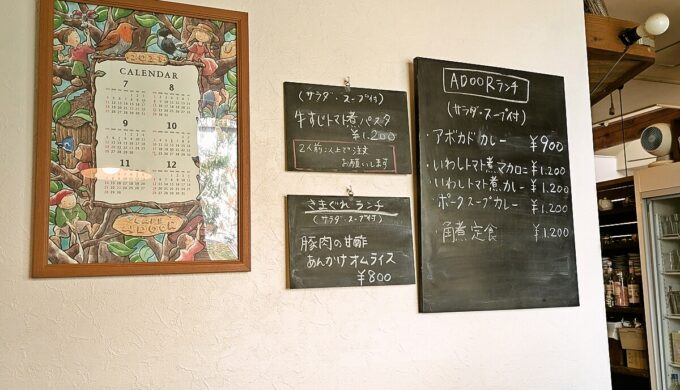 CALENDAR
7 8
9 10
11 12
(サラダ・スープ付)
牛すじトマト煮パスタ
¥1.200
2人前以上で注文
お願いします
きまぐれランチ
(サラダ・スープ付)
豚肉の甘酢
あんかけオムライス
¥800
ADOORランチ
(サラダ・スープ付)
・アボカドカレー ¥900
・いわしトマト煮マカロニ ¥1.200
・いわしトマト煮カレー ¥1.200
・ポークスープカレー ¥1.200
・角煮定食 ¥1.200